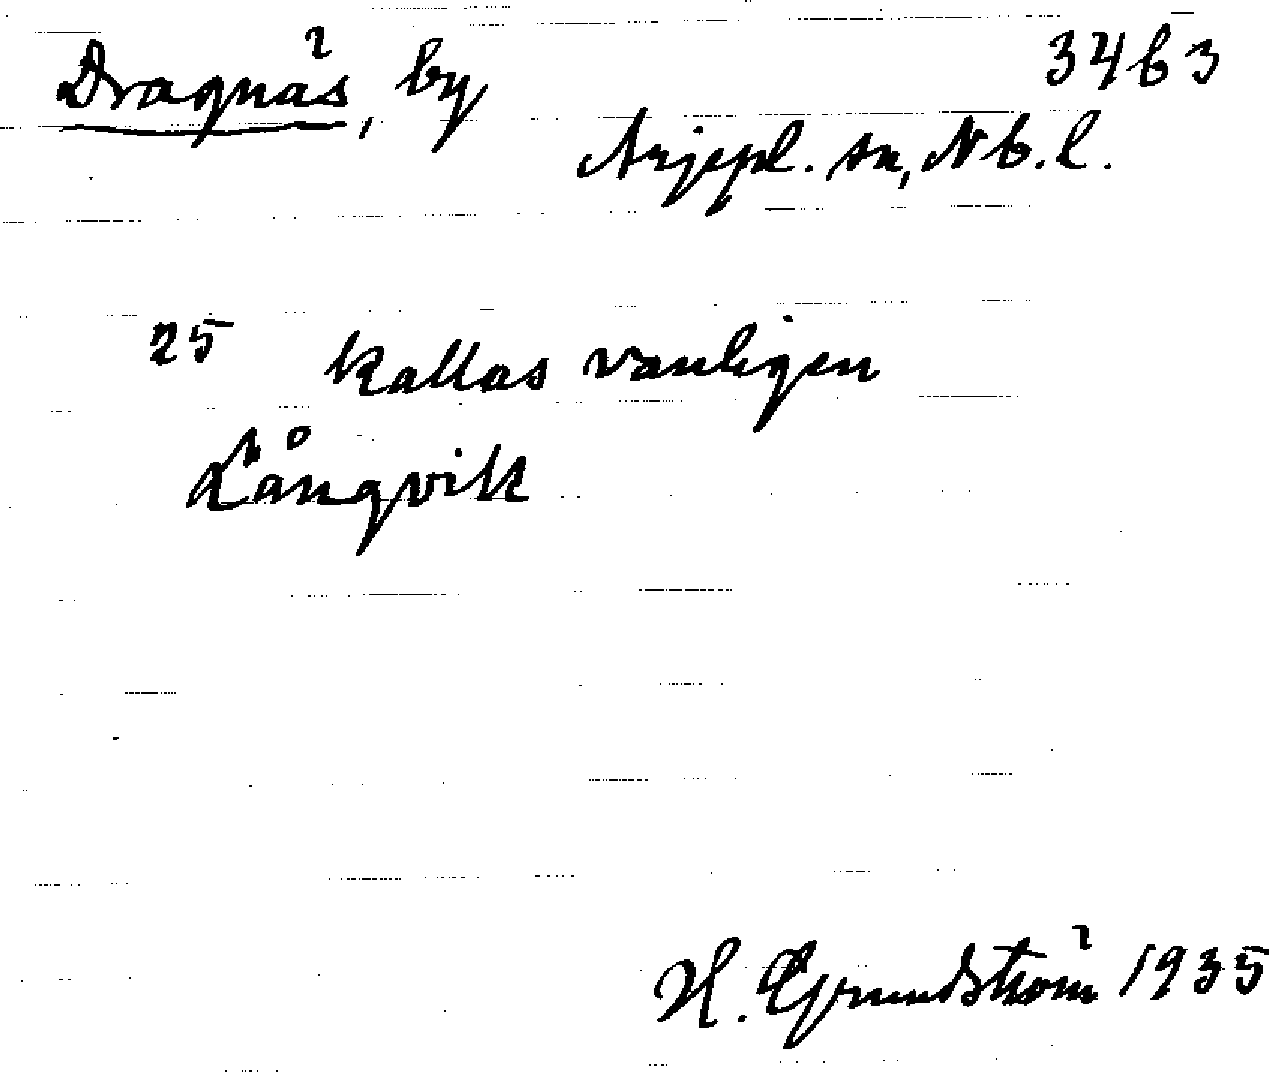 Dragnäs, by 3463
Arjepl. sn, Nb. l.
25 kallas vanligen
Långvik
H. Grundström 1935